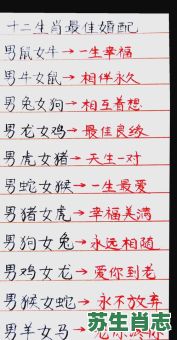 十二生肖最佳婚配
男鼠女牛→一生幸福
男牛女鼠→相伴永久
男兔女狗→相互着想
男龙女鸡→最佳良缘
男虎女猪→天生一对
男蛇女猴→一生最爱
男猪女虎→幸福美满
男狗女兔→永远相随
男鸡女龙→爱你到老
男猴女蛇→永不放弃
男羊女马→
苏生肖志